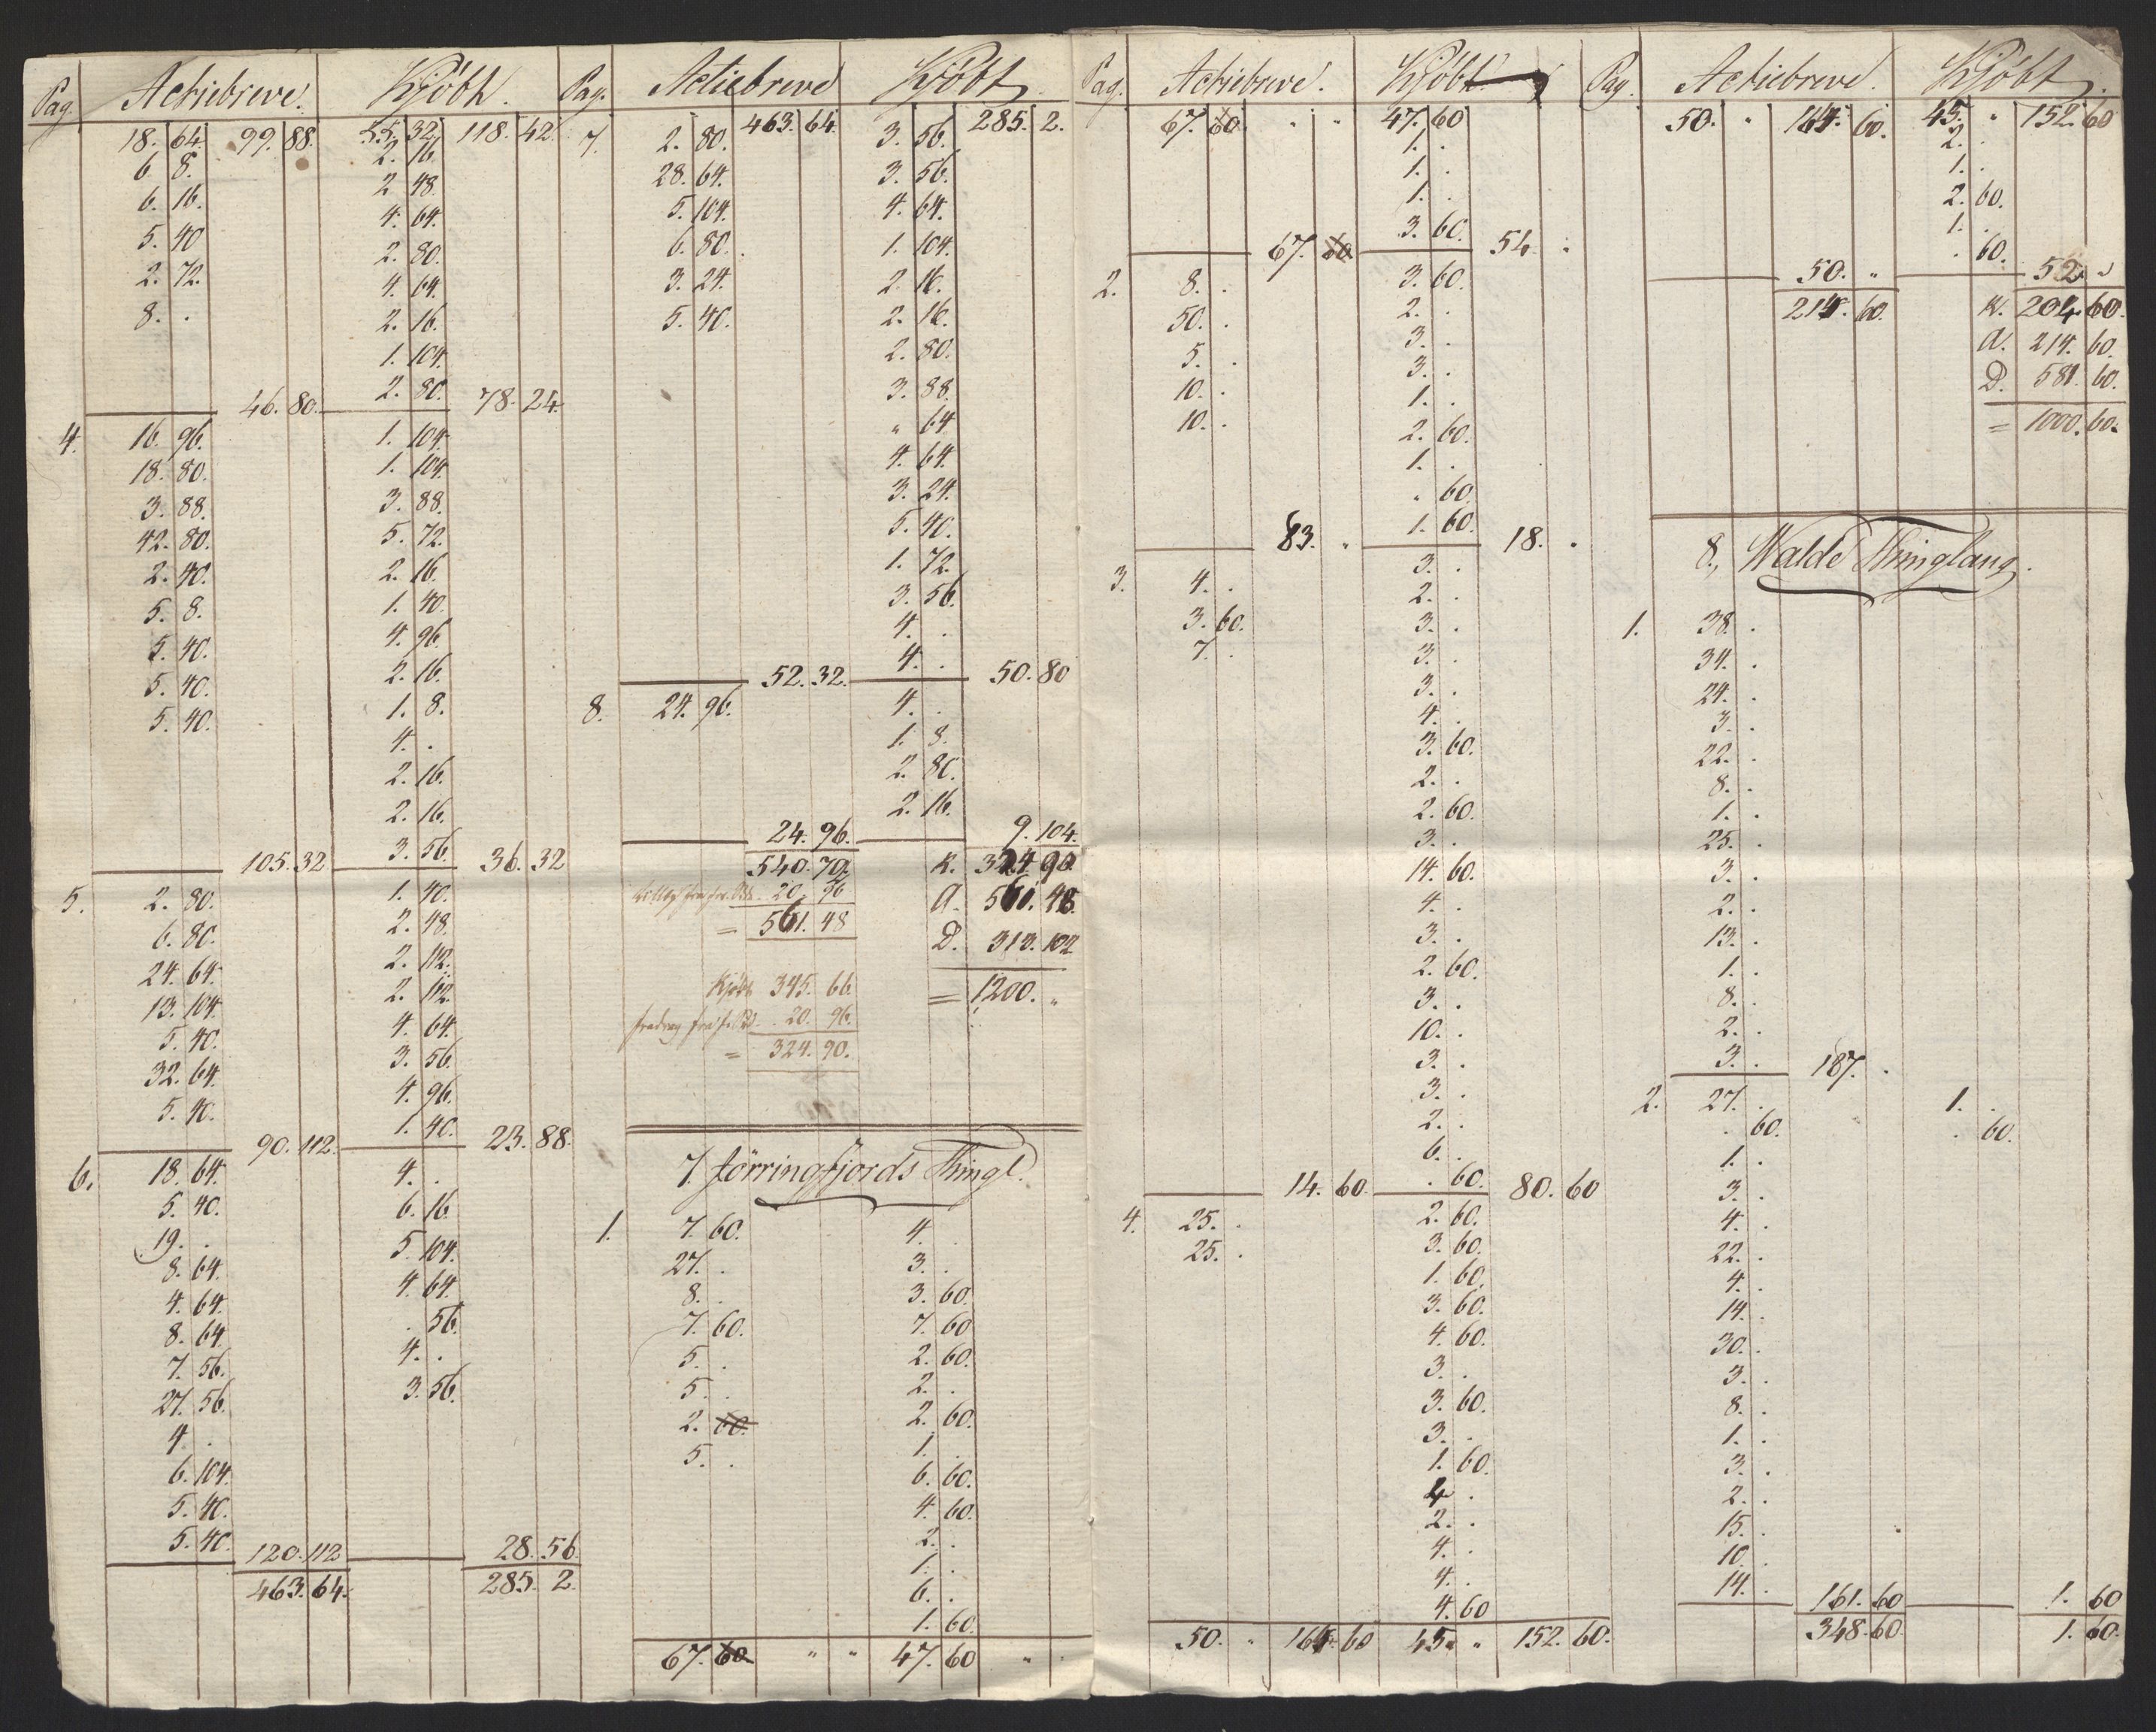 Pag. Actiebreve. Kjöbt.
18. 64. 99. 88. 55. 32. 118. 42.
6 8. 2. 16.
6. 16. 2 48.
5. 40 4. 64.
2. 72. 2. 80.
8. . 4. 64.
2. 16.
1. 104.
46. 80. 2. 80. 78. 24.
4. 16. 96. 1. 104.
18. 80. 1. 104.
3. 88. 3. 88.
42. 80. 5. 72.
2. 40. 2. 16.
5. 8. 1. 40.
5. 40. 4. 96.
5. 40. 2. 16.
5. 40. 1. 8.
4. .
2. 16.
2. 16.
105. 32. 3. 56. 36. 32
5. 2. 80. 1. 40.
6. 80. 2. 48.
24. 64. 2. 112.
13. 104. 2. 112.
5. 40. 4. 64.
32. 64. 3. 56.
5. 40. 4. 96.
90. 112. 1. 40. 23. 88.
6. 18. 64. 4. .
5. 40. 6. 16.
19. . 5. 104.
8. 64. 4. 64.
4. 64. . 56.
8. 64. 4. .
7. 56. 3. 56.
27. 56.
4 .
6. 104.
5. 40.
5. 40. 120. 112 28. 56.
463. 64. 285. 2.
Pag. Actiebreve Kjöbt
7. 2. 80. 463. 64. 3. 56. 285. 2.
28. 64. 3. 56.
5. 104. 4. 64.
6. 80. 1. 104.
3. 24. 2. 16.
5. 40. 2. 16.
2. 80.
3. 88.
" 64
4. 64.
3. 24.
5. 40.
1. 72.
3. 56.
4. .
52. 32. 4. . 50. 80
8. 24. 96. 4. .
1. 8.
2. 80.
2. 16.
24. 96. 9. 104.
540. 70. K. 324. 90
20. 96 A. 561. 48.
= 561. 48 D. 313. 102
Kjöbt 345. 66 = 1200. "
20. 96.
= 324. 90.
7. Jörringfjords Thingl.
1. 7. 60. 4. .
27. . 3. .
8. . 3. 60.
7. 60. 7. 60
5. . 2. 60.
5. . 2. .
2. 60. 2. 60.
5. . 1. .
6. 60.
4. 60.
2. .
1. .
6. .
1. 60.
67. 60. " " 47. 60 " .
Pag. Actiebreve. Kjöbt
67. 60. " " 47. 60
1. .
1. .
1. .
67. 60 3. 60. 54. "
2. 8. . 3. 60.
50. . 2. .
5. . 3. .
10. . 3. .
10. . 1. .
2. 60.
1. .
" 60.
83. " 1. 60. 18. "
3. 4. . 3. .
3. 60. 2. .
7. . 3. .
3. .
3. .
4. .
3. 60.
2. .
2. 60.
3. .
14. 60.
4. .
3. .
2. 60.
3. .
10. .
3. .
3. .
2. .
6. .
14. 60. . 60. 80. 60
4. 25. . 2. 60.
25. . 3. 60.
1. 60.
3. 60.
4. 60.
3. .
3. 60.
3. .
1. 60.
4 .
2. .
4. .
4. .
4. 60
50. " 164. 60 45. " 152. 60.
Pag. Actiebreve. Kjöbt.
50. " 164. 60. 45. " 152. 60
2. .
1. .
2. 60.
1. .
. 60.
50. " 52. "
214. 60. K. 204. 60.
A. 214. 60.
D. 581. 60.
= 1000. 60.
8., Walde Thinglaug.
1. 38. .
34. .
24. .
3. .
22. .
8. .
1. .
25. .
3. .
2. .
13. .
1. .
8. .
2. .
3. . 187. .
2. 27. . 1. .
. 60. . 60.
1. .
3. .
4. .
22. .
4. .
14. .
30. .
3. .
8. .
1. .
3. .
2. .
15. .
10. .
14. . 161. 60 1. 60
348. 60. 1. 60.